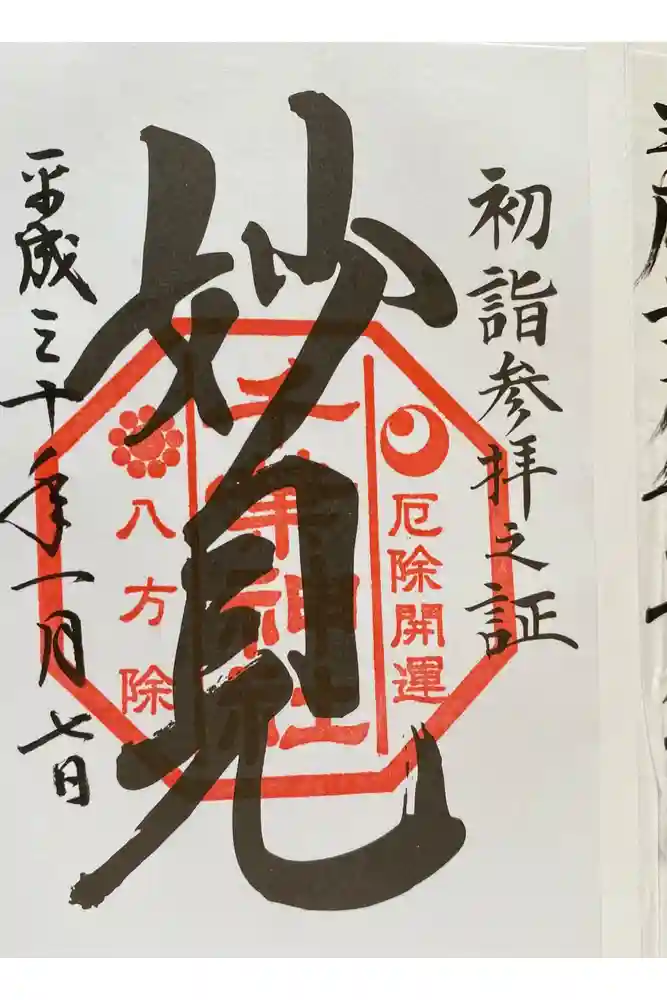 初詣参拝之証
妙見
厄除開運
千葉神社
八方除
平成三十年一月七日